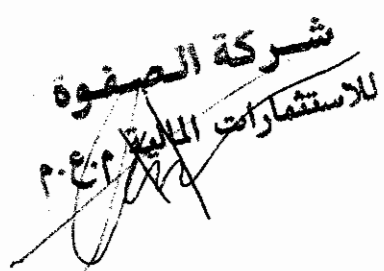 شركة الصفوة
للاستثمارات المالية م.ع.م